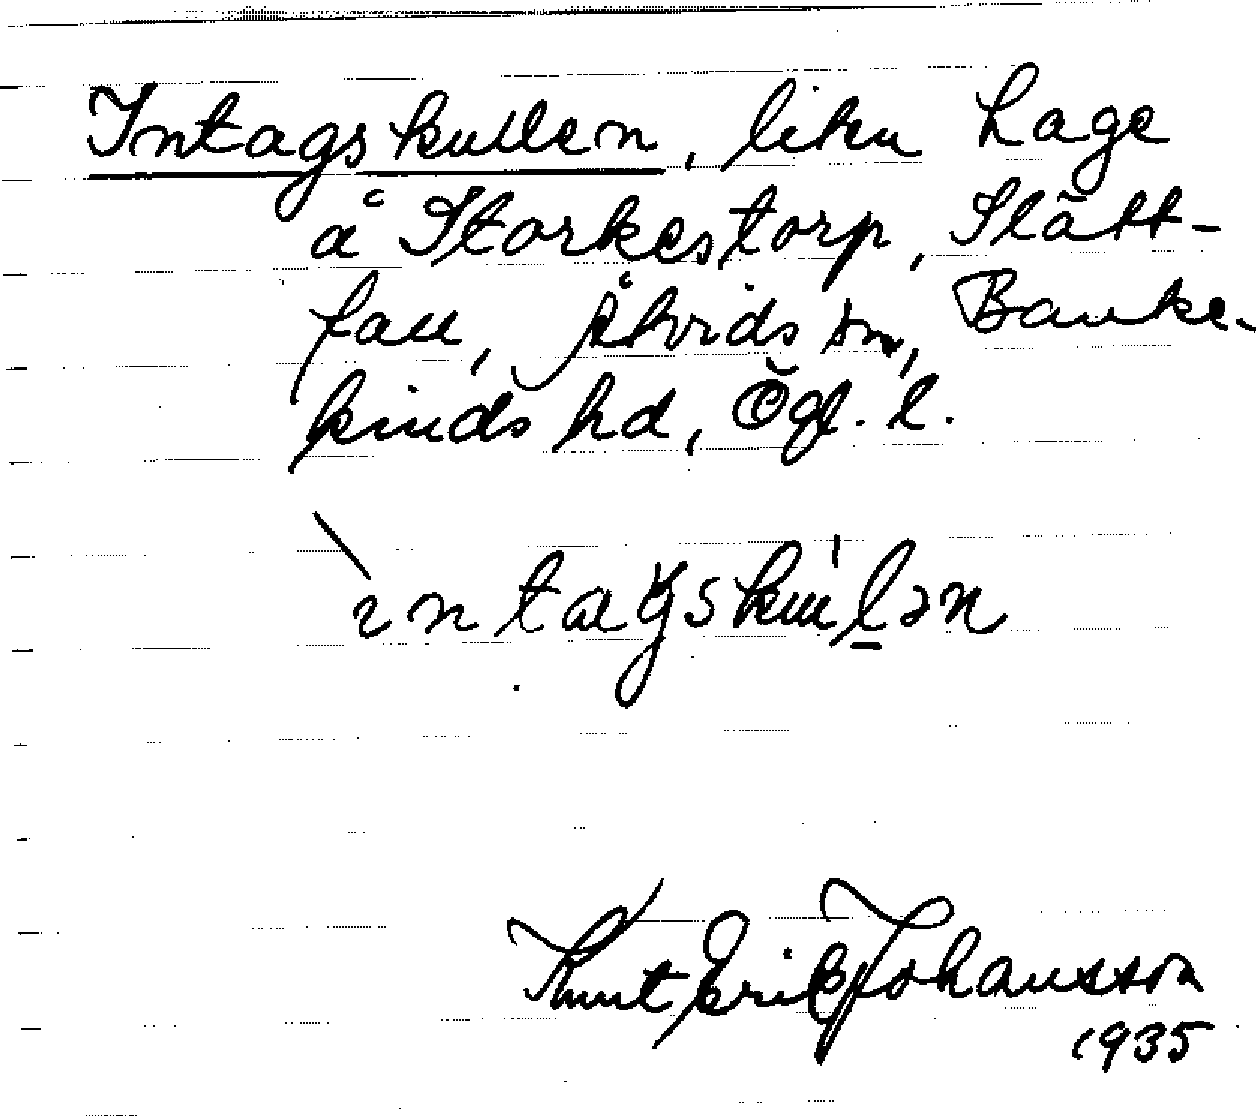 Intagskullen, liten hage
å Storkestorp, Slätt-
fall, Åtvids sn, Banke-
kinds hd, Ögl. l.
Knut Erik Johansson
1935